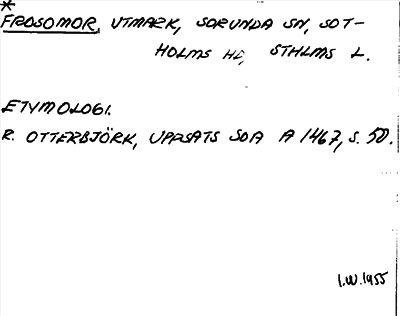 *
FROSOMOR, UTMARK, SORUNDA SN, SOT-
HOLMS HD, STHLMS L.
ETYMOLOGI.
R. OTTERBJÖRK, UPPSATS SOA A 1467, S. 50.
I.W. 1955